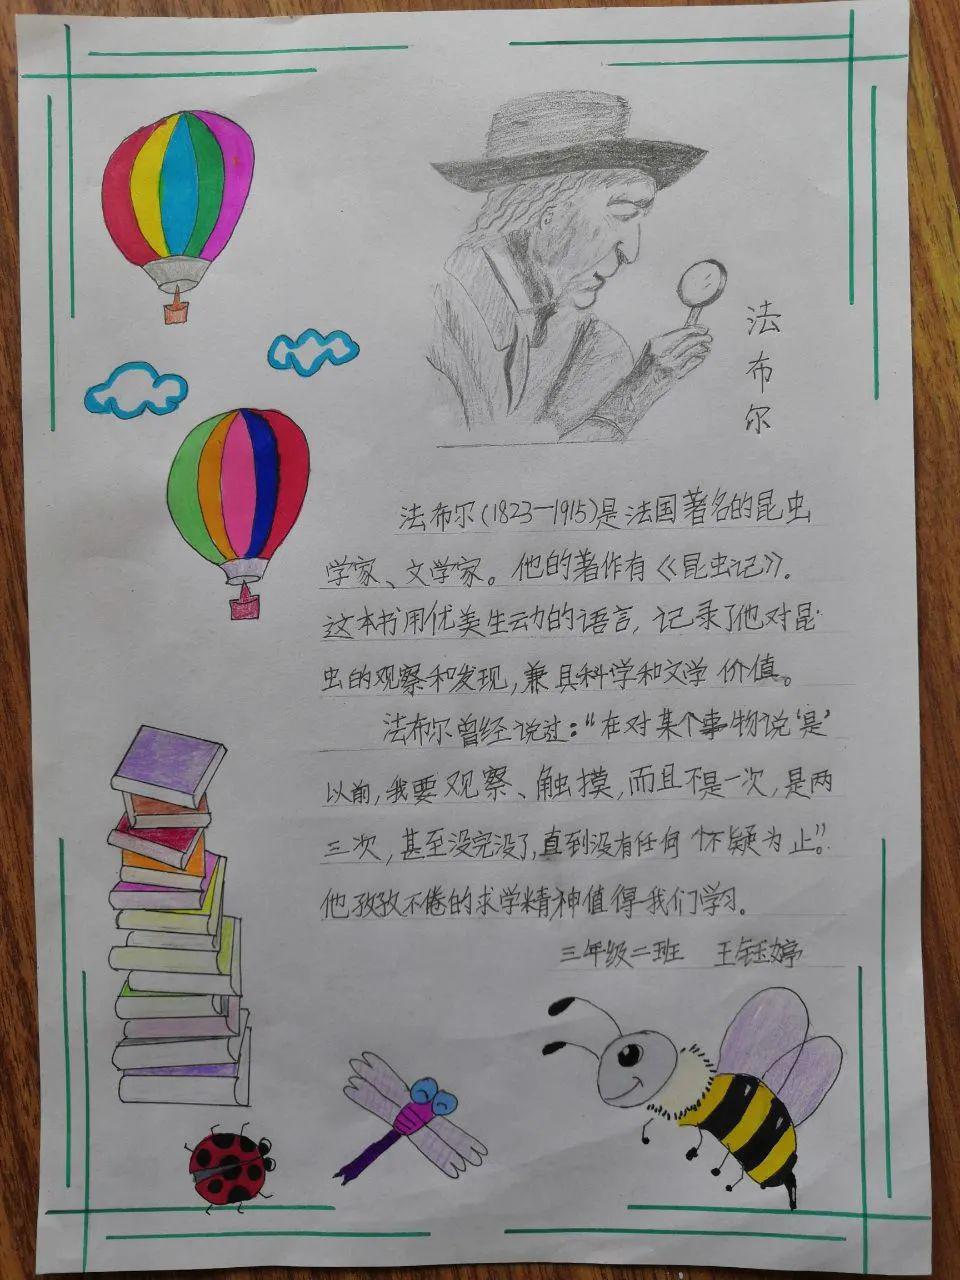 法布尔
法布尔(1823—1915)是法国著名的昆虫
学家、文学家。他的著作有《昆虫记》。
这本书用优美生动的语言,记录了他对昆
虫的观察和发现,兼具科学和文学价值。
法布尔曾经说过:“在对某个事物说‘是’
以前,我要观察、触摸,而且不是一次,是两
三次,甚至没完没了,直到没有任何怀疑为止”。
他孜孜不倦的求学精神值得我们学习。
三年级二班 王钰婷